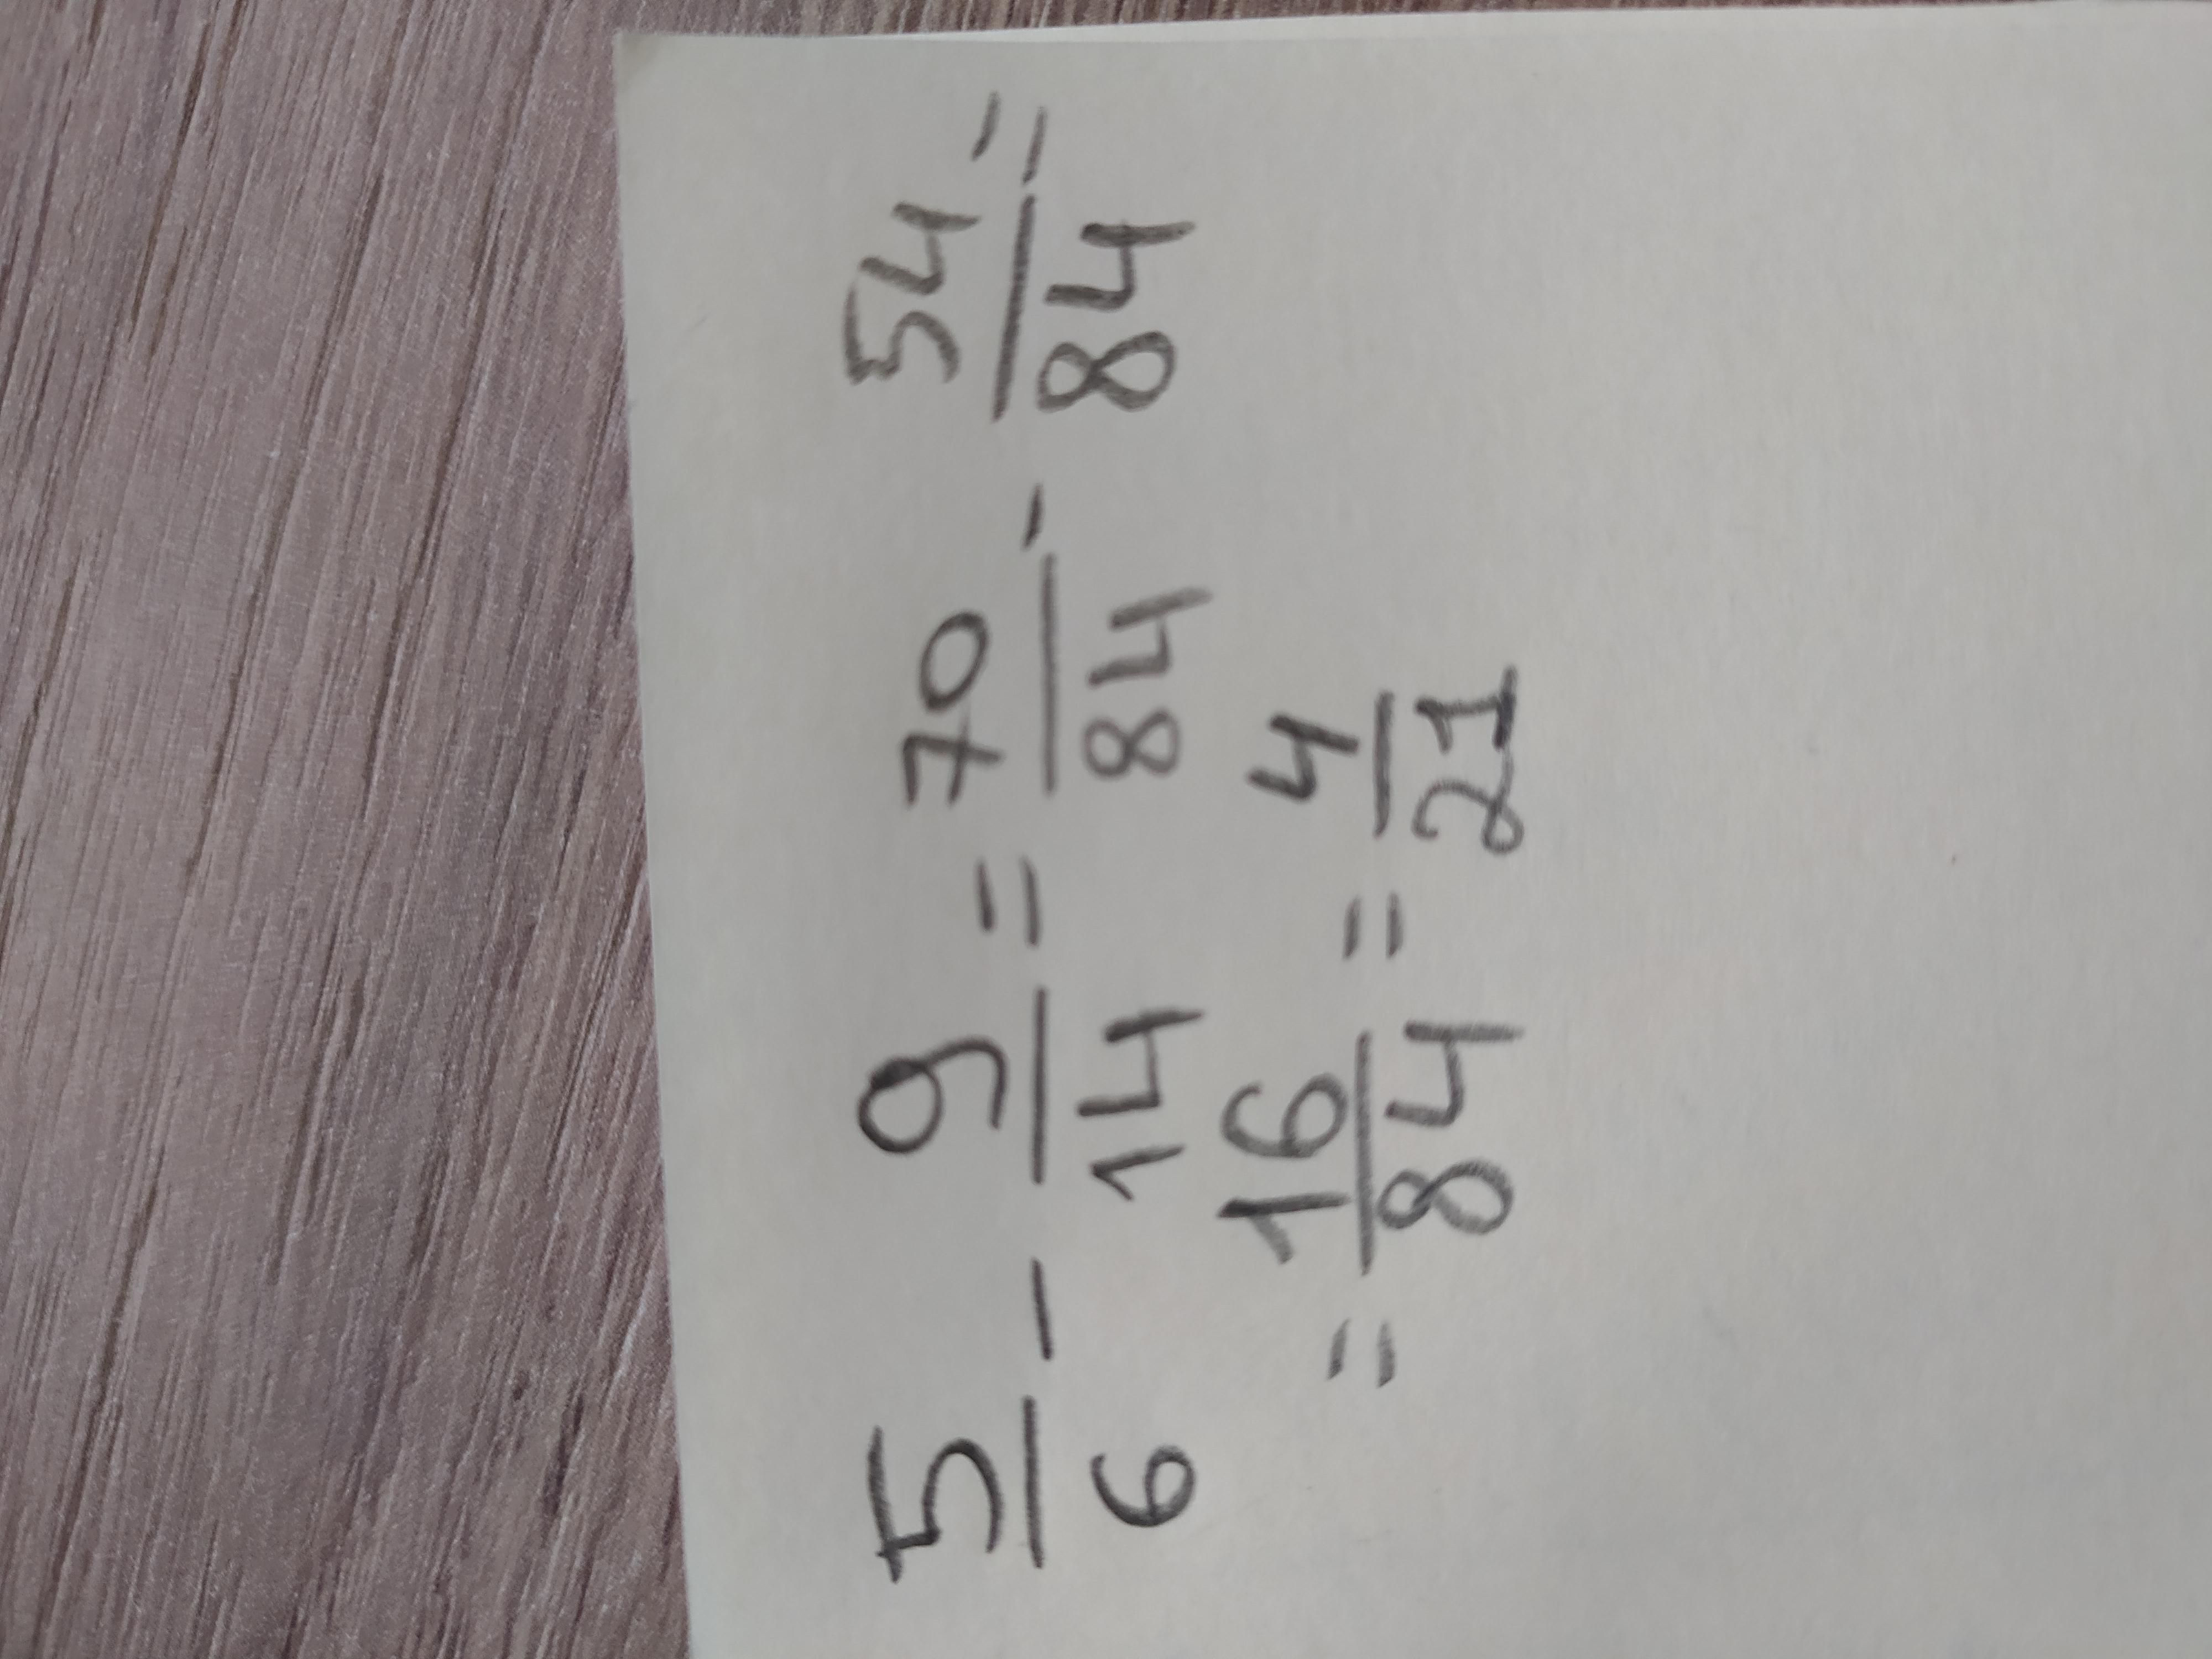 5/6 - 9/14 = 70/84 - 54/84 =
= 16/84 = 4/21